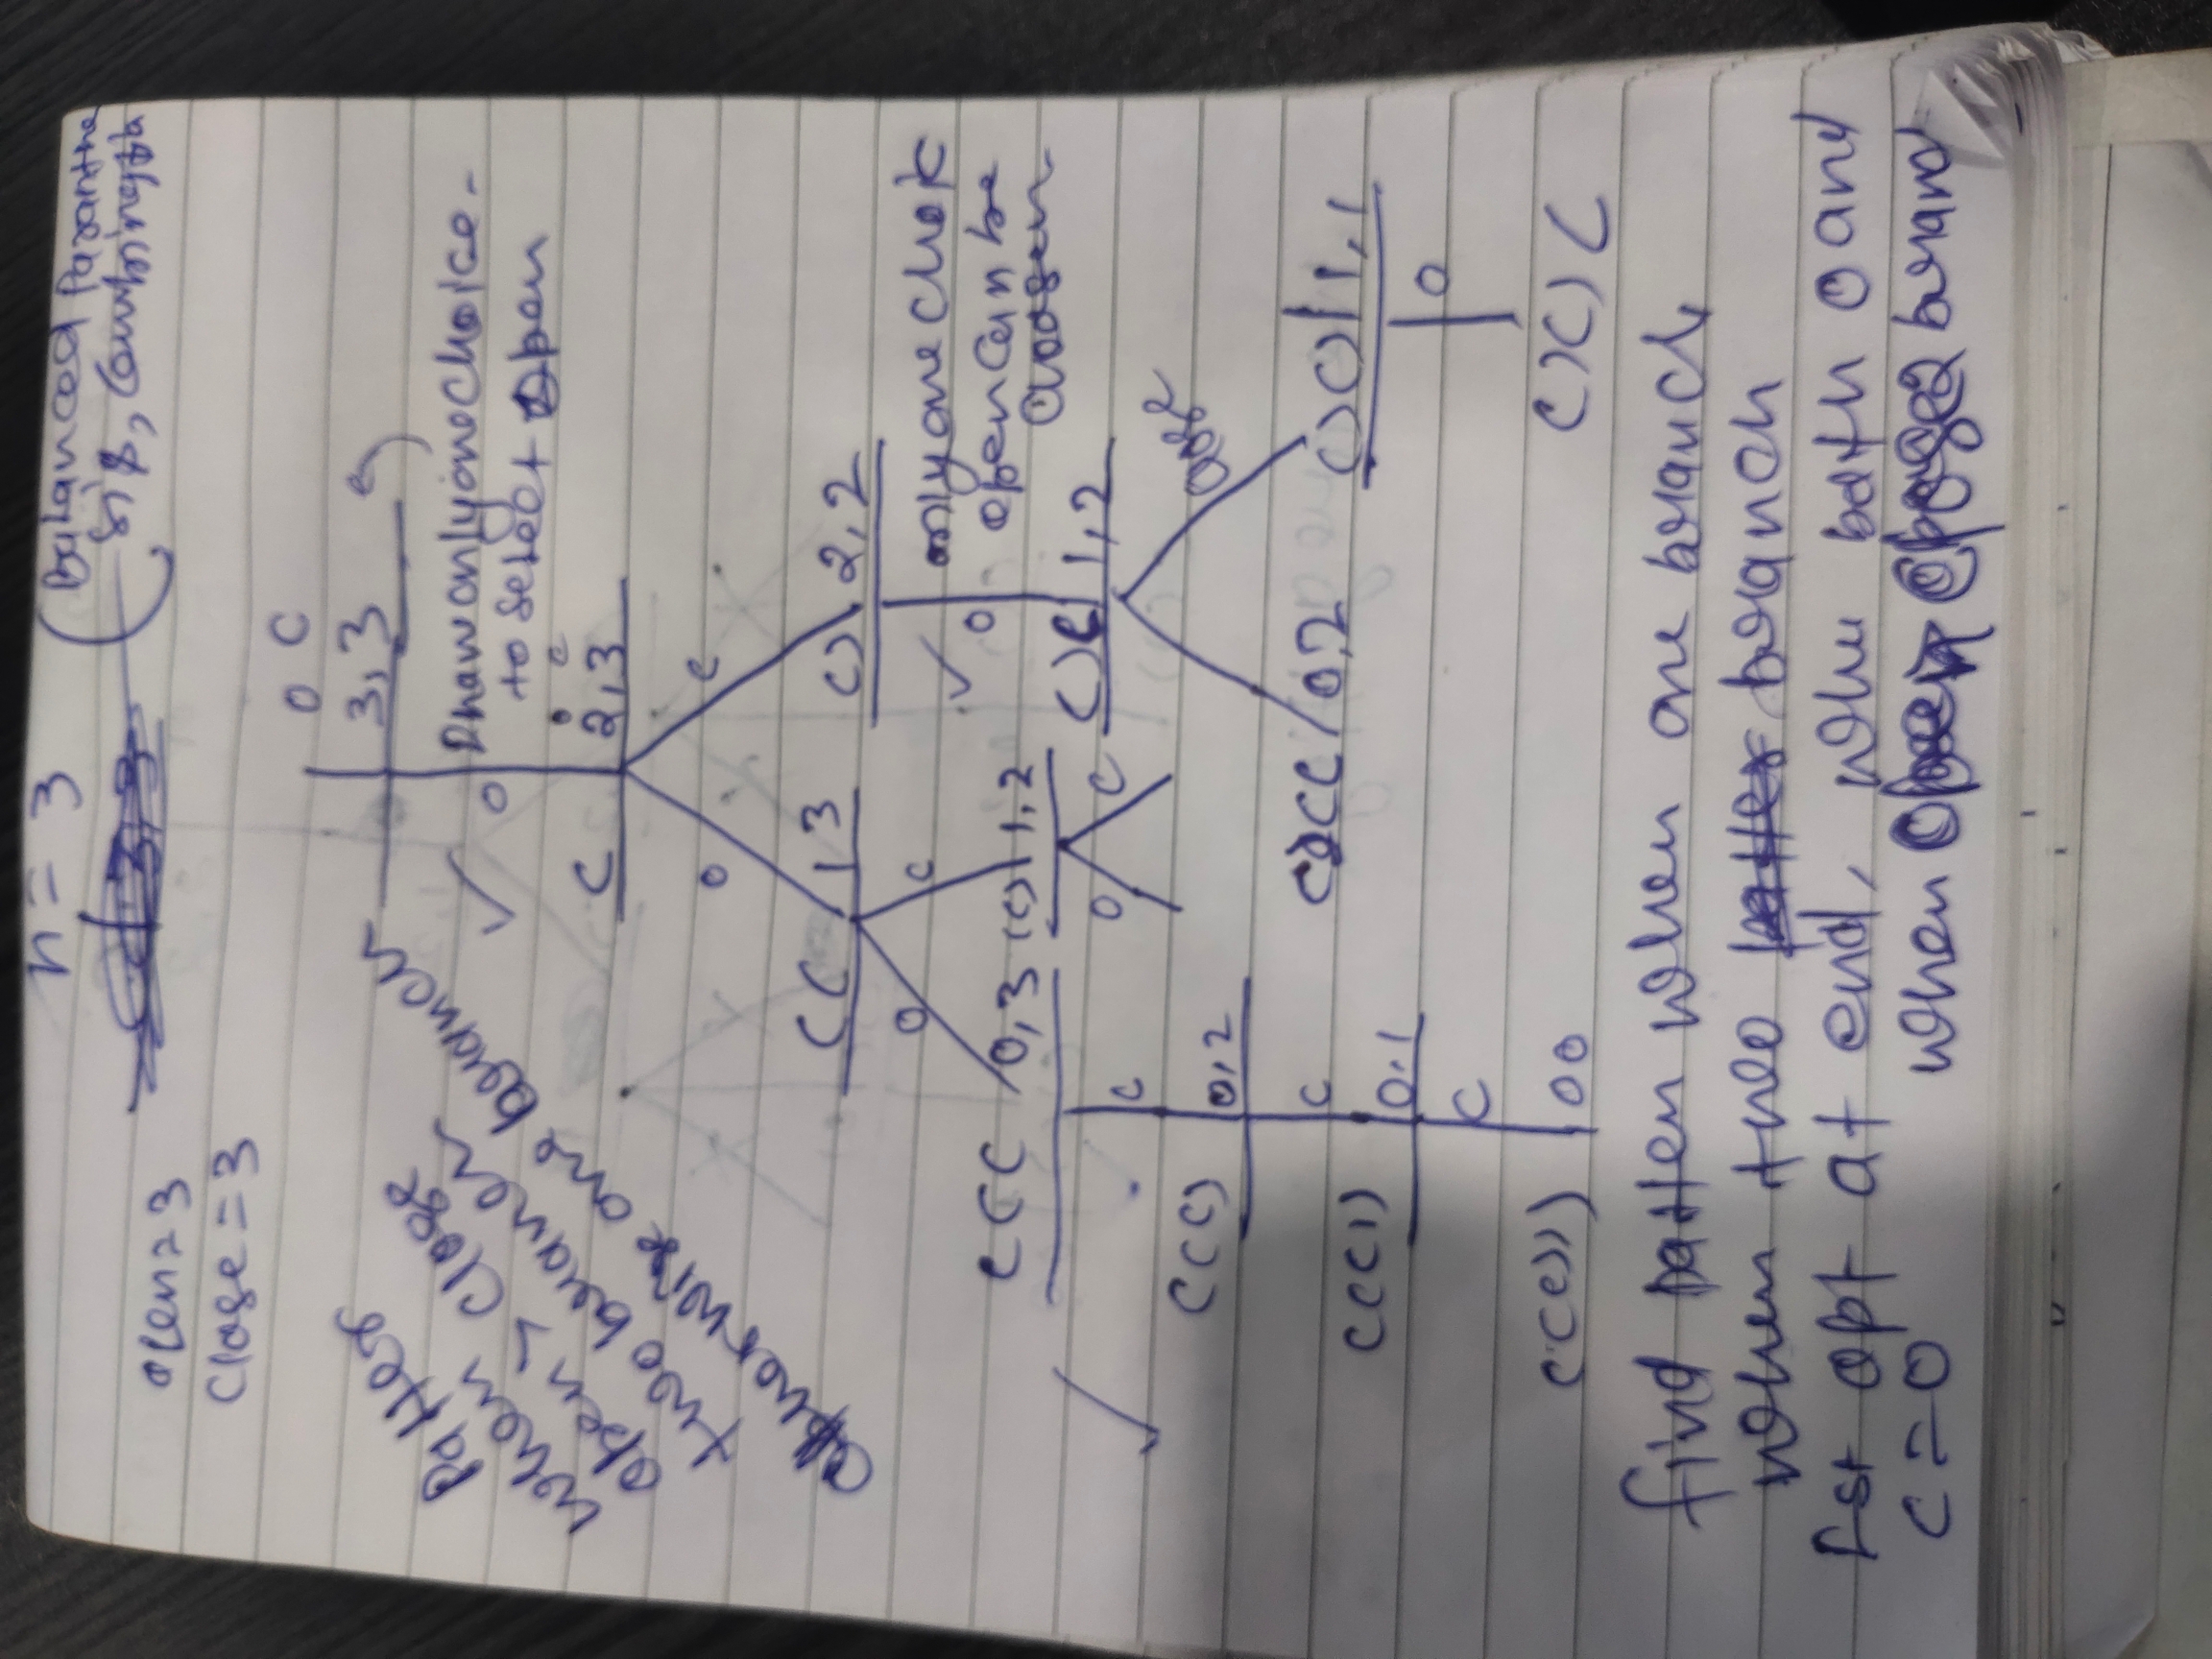 n = 3
(Balanced Paranthe
sis, Combinatn
open = 3
Close = 3
O C
3, 3
Patter
when
open > close
two branch
otherwise one branch
Draw only one choice -
to select open
O
o c
( 2, 3
O C
(( 1 3
() 2, 2
O C
only one choic
open can be
choosen
O
((( 0, 3
(() 1, 2
()( 1, 2
C
O C
close
((() 0, 2
C
()(( 0, 2
()() 1, 1
((()) 0, 1
O
C
((())) 0 0
()()(
find patten when one branch
when two branch
Ist opt at end, when both o and
c = 0 when branch